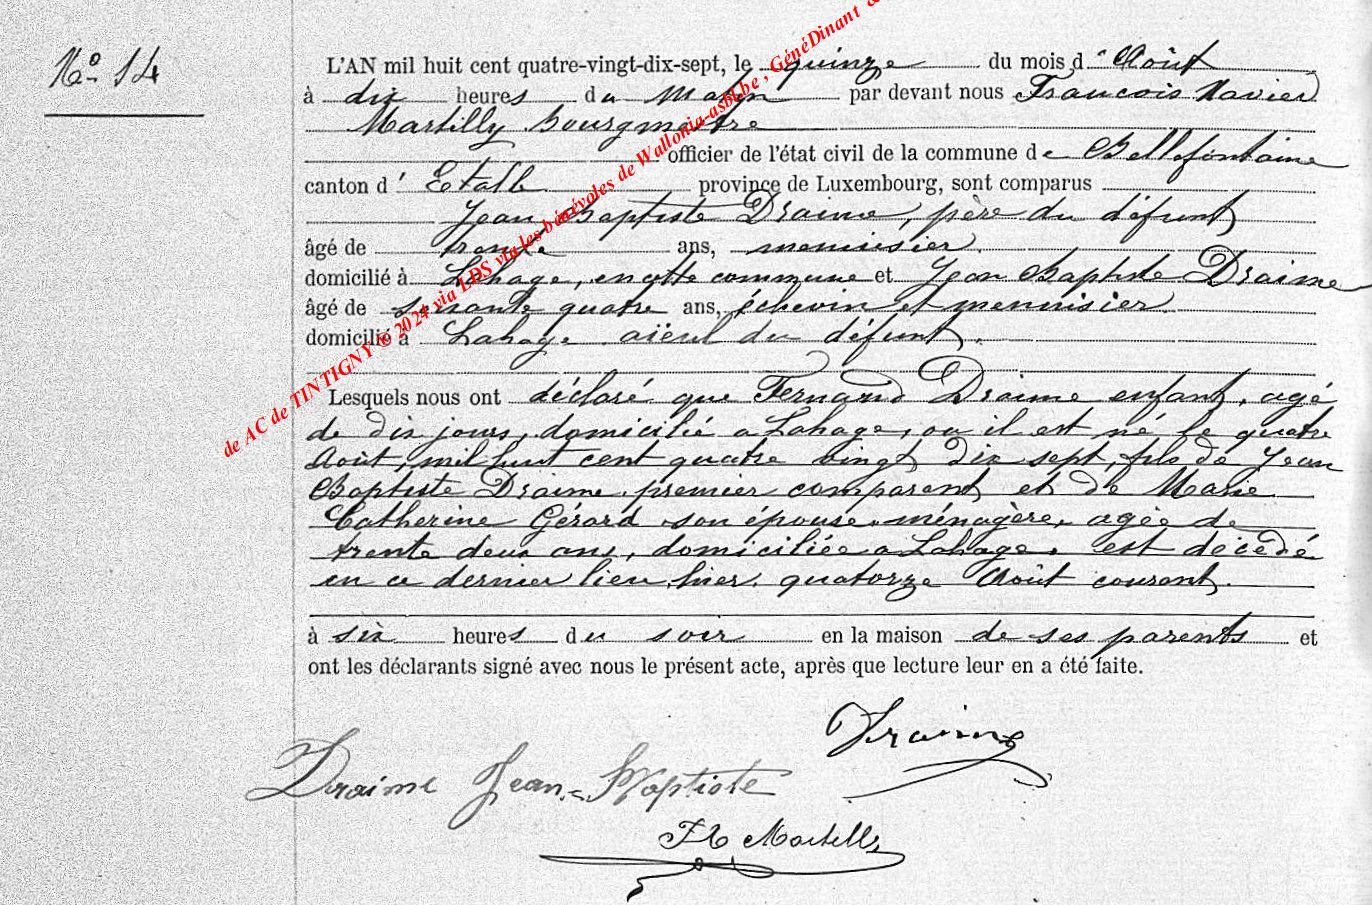 No 14
L'AN mil huit cent quatre-vingt-dix-sept, le quinze du mois d'Août
à dix heures du matin par devant nous Francois Xavier
Martilly Bourgmestre
officier de l'état civil de la commune de Bellefontaine
canton d'Etalle province de Luxembourg, sont comparus
Jean Baptiste Draime, père du défunt
âgé de trente ans, menuisier
domicilié à Lahage, en cette commune et Jean Baptiste Draime
âgé de soixante quatre ans, échevin et menuisier
domicilié à Lahage aïeul du défunt.
Lesquels nous ont déclaré que Fernand Draime enfant, agé
de dix jours, domicilié a Lahage, ou il est né le quatre
Août, mil huit cent quatre vingt dix sept, fils de Jean
Baptiste Draime premier comparant et de Marie
Catherine Gérard son épouse, ménagère, agée de
trente deux ans, domiciliée a Lahage, est décédé
en ce dernier lieu, hier, quatorze Août courant.
à six heures du soir en la maison de ses parents et
ont les déclarants signé avec nous le présent acte, après que lecture leur en a été faite.
Draime
Draime Jean-Baptiste
FX Martilly
de AC de TINTIGNY © 2024 via LDS via les bénévoles de Wallonia-asbl.be, GénéDinant &